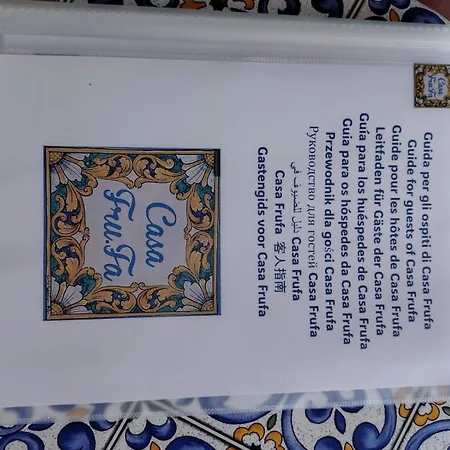 Casa
Fru.Fa
Guida per gli ospiti di Casa Frufa
Guide for guests of Casa Frufa
Guide pour les hôtes de Casa Frufa
Leitfaden für Gäste der Casa Frufa
Guía para los huéspedes de Casa Frufa
Guia para os hóspedes da Casa Frufa
Przewodnik dla gości Casa Frufa
Руководство для гостей Casa Frufa
دليل للضيوف في Casa Frufa
Casa Frufa 客人指南
Gastengids voor Casa Frufa
Casa
Fru.Fa